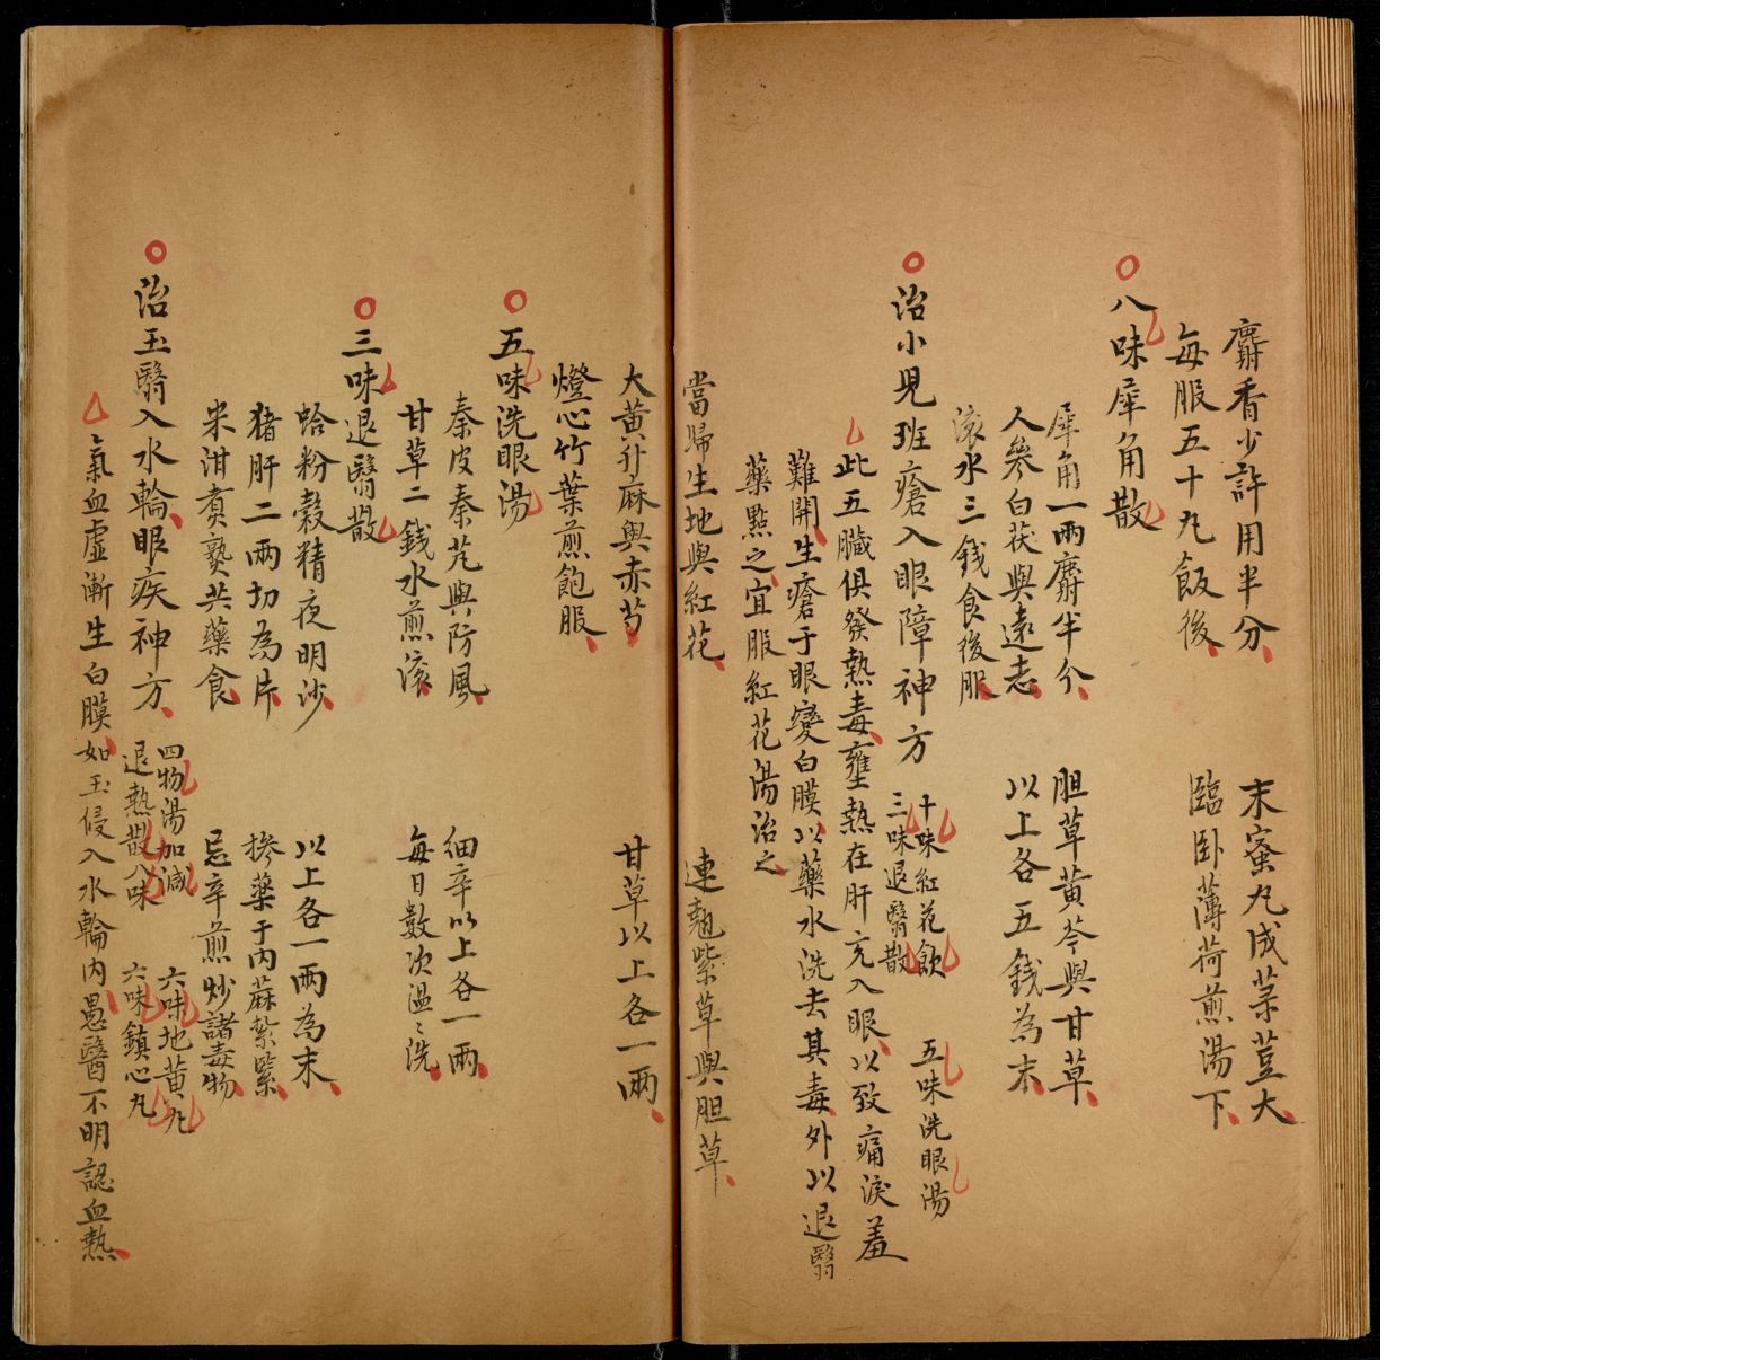 麝香少許用半分　末蜜丸成菉荳大
每服五十丸飯後　臨卧薄荷煎湯下
八味犀角散
犀角一兩麝半分　胆草黄芩與甘草
人參白茯與遠志　以上各五錢為末
滚水三錢食後服
治小児班瘡入眼障神方
十味紅花飲　五味洗眼湯
三味退翳散
此五臟俱發熱毒壅熱在肝充入眼以致痛淚羞
難開生瘡于眼變白膜以藥水洗去其毒外以退翳
藥點之宜服紅花湯治之
當歸生地與紅花　連翹紫草與胆草
大黄升麻與赤芍　甘草以上各一兩
燈心竹葉煎飽服
五味洗眼湯
秦皮秦艽與防風　細辛以上各一兩
甘草二錢水煎滚　每日數次温〻洗
三味退翳散
蛤粉穀精夜明沙　以上各一兩為末
猪肝二兩切為片　摻藥于内蔴紮緊
米泔煮熟共藥食　忌辛煎炒諸毒物
治玉翳入水輪眼疾神方
四物湯加減　六味地黄丸
退熱散八味　六味鎮心丸
氣血虛漸生白膜如玉侵入水輪内愚醫不明認血熱